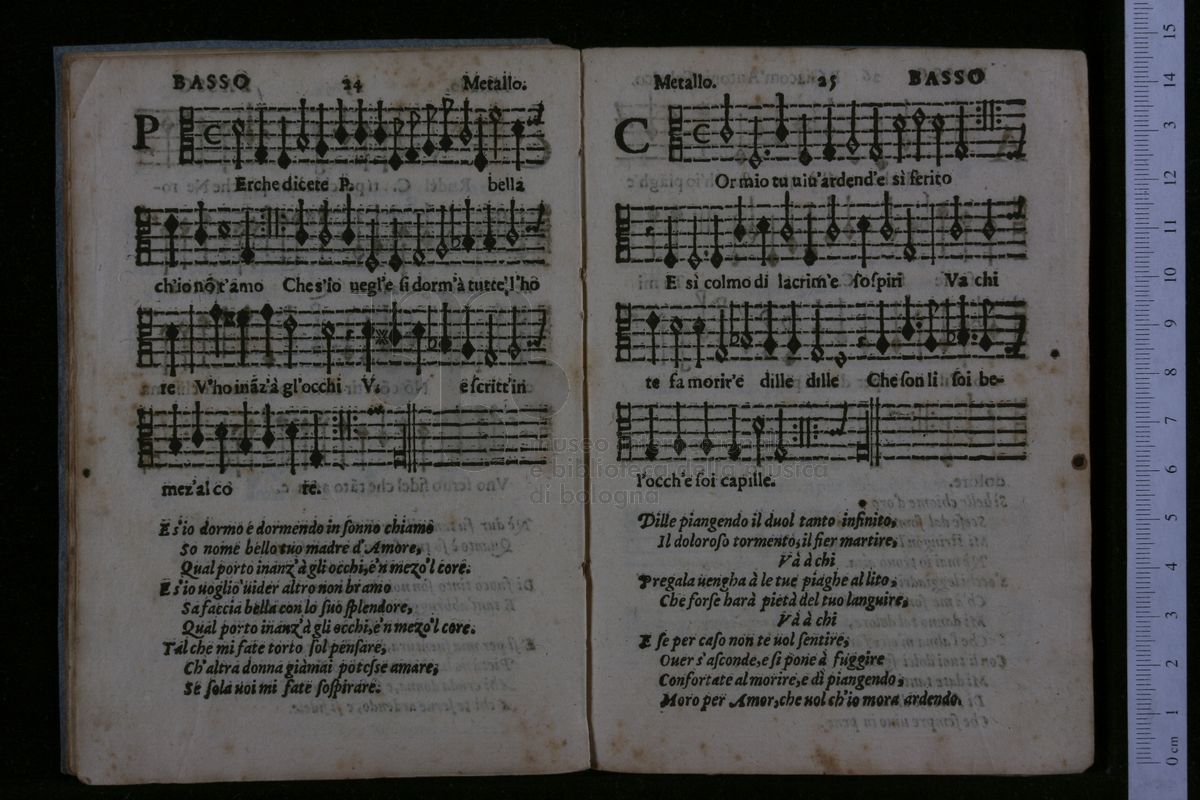 BASSO 24 Metallo.
P
Erche dicete P. bella
ch'io nō t'amo Che s'io uegl'e si dorm'à tutte l'ho
re V'ho ināz'à gl'occhi V. e scritt'in
mez'al co re.
E s'io dormo e dormendo in sonno chiamo
So nome bello tuo madre d'Amore,
Qual porto inanz'à gli occhi, e'n mezo'l core.
E s'io uoglio uider altro non bramo
Sa faccia bella con lo suo splendore,
Qual porto inanz'à gli occhi, e'n mezo'l core.
Tal che mi fate torto sol pensare,
Ch'altra donna giàmai potesse amare,
Se sola uoi mi fate sospirare.
Metallo. 25 BASSO
C
Or mio tu uiu'ardend'e sì ferito
E sì colmo di lacrim'e sospiri Va chi
te fa morir'e dille dille Che son li soi be-
l'occh'e soi capille.
Dille piangendo il duol tanto infinito,
Il doloroso tormento, il fier martire,
Và à chi
Pregala uengha à le tue piaghe al lito,
Che forse harà pietà del tuo languire,
Và à chi
E se per caso non te uol sentire,
Ouer s'asconde, e si pone à fuggire
Confortate al morire, e dì piangendo,
Moro per Amor, che uol ch'io mora ardendo.
museo internazionale
e biblioteca della musica
di bologna
0 cm 1 2 3 4 5 6 7 8 9 10 11 12 13 14 15